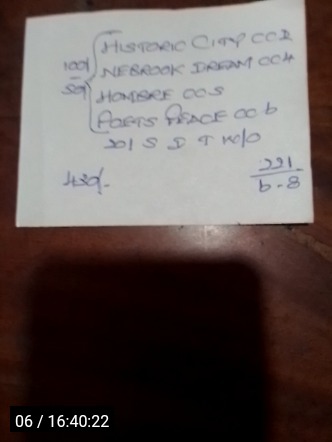 100/- HISTORIC CITY CC 1
NEBROOK DREAM CC 4
50/ HOMBRE CC S
POETS PEACE CC 6
201 S D T W/O
430/-
221
6-8
06 / 16:40:22